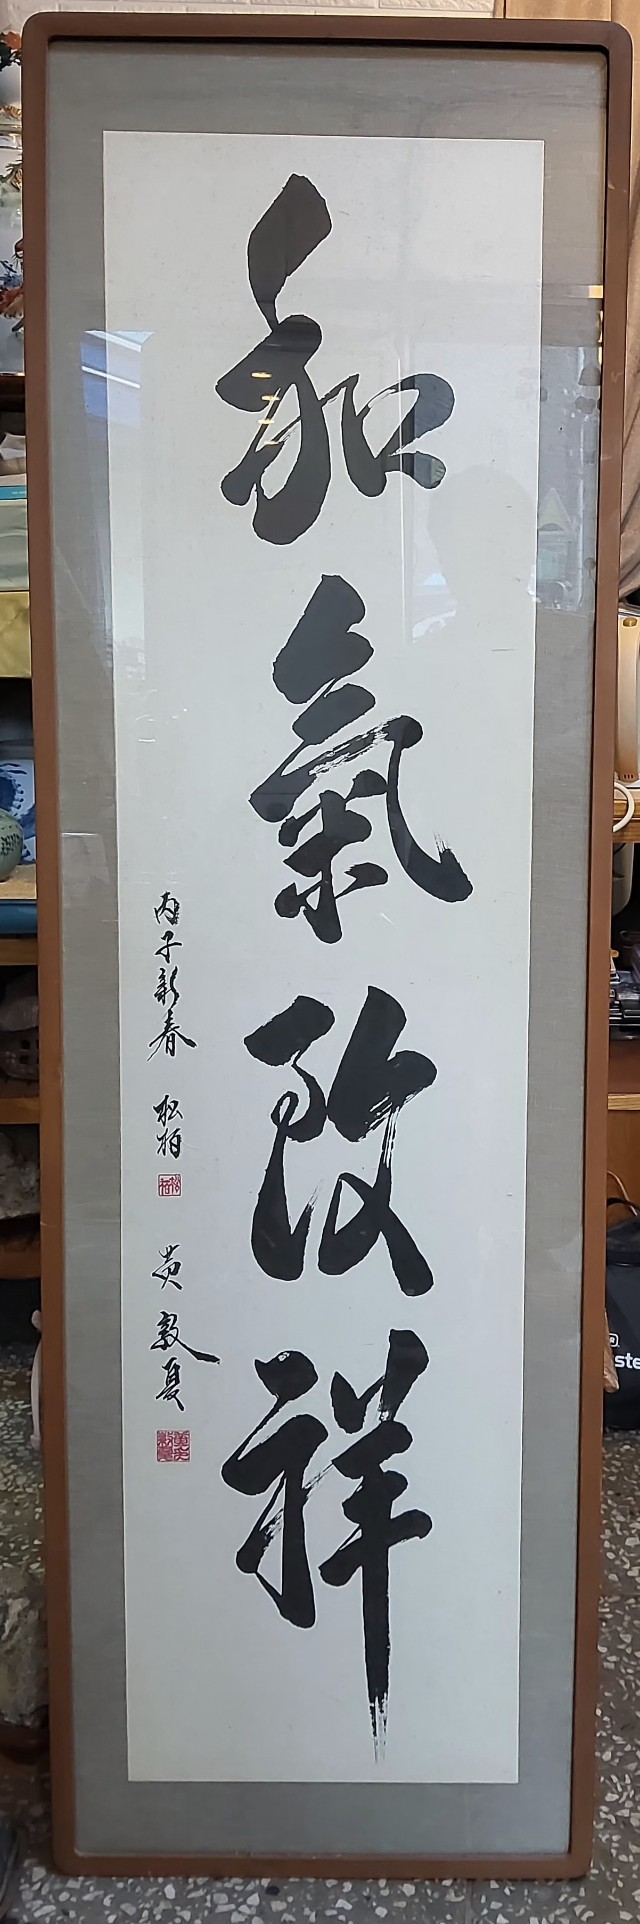 和氣致祥
丙子新春 松柏 黃敦夏